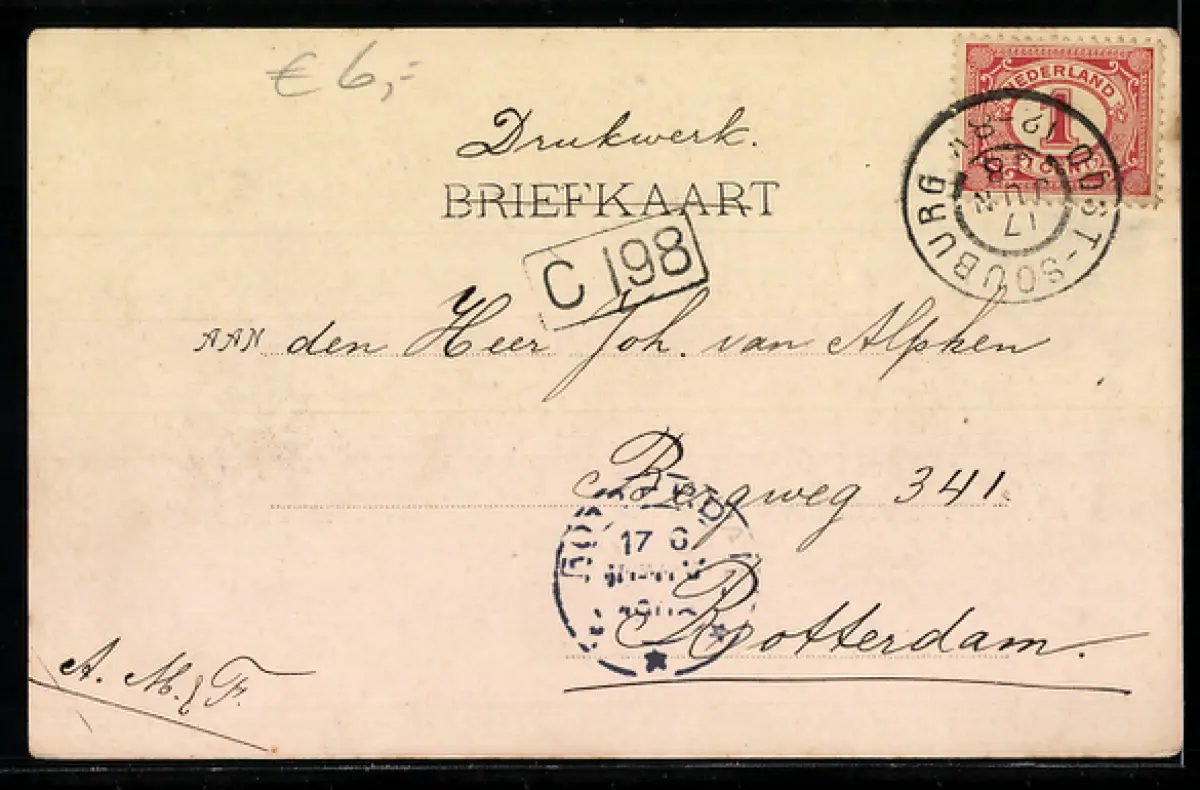 € 6,-
Drukwerk.
BRIEFKAART
NEDERLAND
1
OOST-SOUBURG
17
JUN
12-8V
C 198
AAN den Heer Joh. van Alphen
Bergweg 341.
17 6
Rotterdam.
A. M. & F.